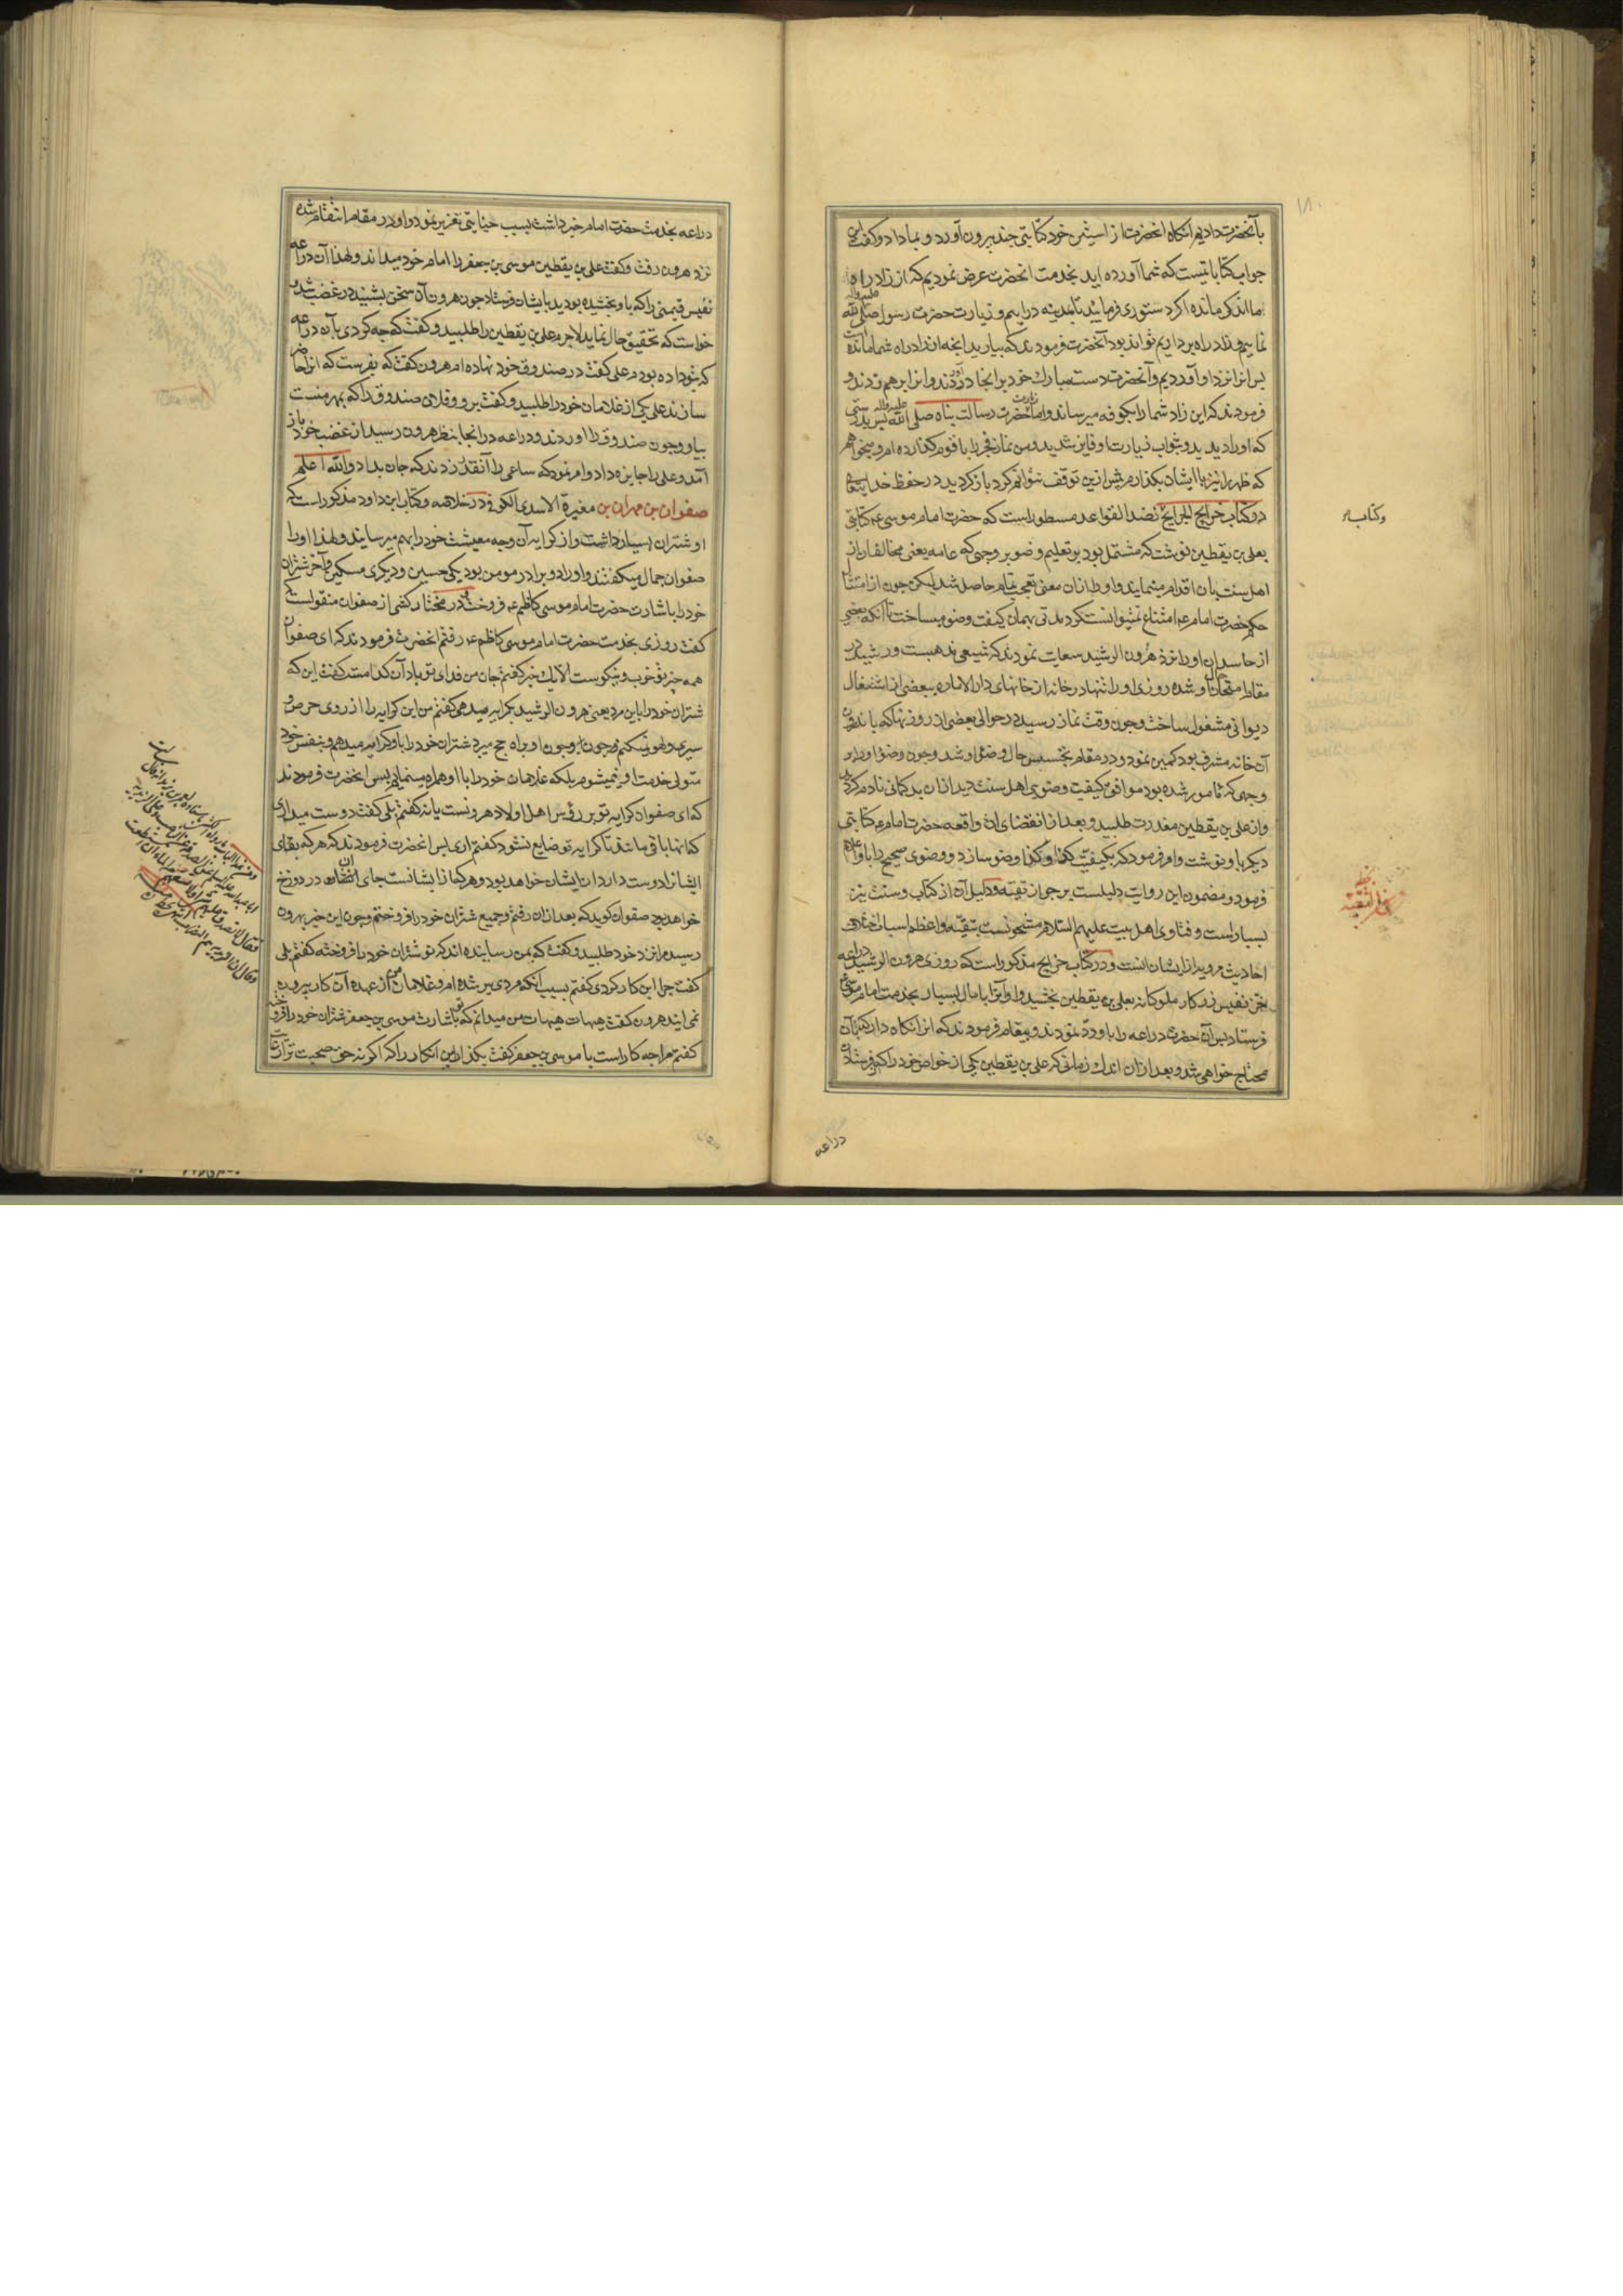 بآنحضرت دادیم آنکاه انحضرت از استین خود کتابتی چند بیرون آورد و بما داد و کفت این
جواب کتاباتیست که شما آورده اید بخدمت انحضرت عرض نمودیم که از زاد راه
ما اندکی مانده اکر دستوری فرمایید بمدینه در اییم و زیارت حضرت رسول صلی الله علیه واله
نماییم و زاد راه برداریم تواند بود آنحضرت فرمودند که بیارید انچه از زاد راه شما مانده است
پس انرا نزد او آوردیم و آنحضرت دست مبارک خود بر انجا زدند و انرا برهم زدند و
فرمودند که این زاد شما را بکوفه میرساند و اما زیارت حضرت رسالت پناه صلی الله علیه واله پس بدرستی
که او را دیدید و بثواب زیارت او فایز شدید و من نماز فجر را با قوم کذارده ام و میخواهم
که ظهر را نیز با ایشان بکذارم بیش ازین توقف نتوانم کرد باز کردید در حفظ خدایتعالی
در کتاب خرایج الجرایح نضد القواعد مسطور است که حضرت امام موسی ع کتابتی
بعلی بن یقطین نوشت که مشتمل بود بر تعلیم وضو بر وجهی که عامه یعنی مخالفان از
اهل سنت بان اقدام مینمایند و او را از ان معنی تعجب تمام حاصل شد لیکن چون از امتثال
حکم حضرت امام ع امتناع نمیتوانست کرد مدتی بهمان کیفیت وضو میساخت تا آنکه بعضی
از حاسدان او را نزد هرون الرشید سعایت نمودند که شیعی مذهبست و رشید در
مقام امتحان حال او شده روزی او را تنها در خانه از خانهای دار الاماره ببعضی از اشتغال
دیوانی مشغول ساخت و چون وقت نماز رسید در حوالی بعضی از روزنها که باندرون
آن خانه مشرف بود کمین نمود و در مقام تجسس حال وضوی او شد و چون وضو او را بر
وجهی که مامور شده بود موافق کیفیت وضوی اهل سنت دید از ان بدکمانی نادم کردید
و از علی بن یقطین معذرت طلبید و بعد از انقضای ان واقعه حضرت امام ع کتابتی
دیکر باو نوشت و امر فرمود که بکیفیت کذا و کذا وضو سازد و وضوی صحیح را باو اعلام
فرمود و مضمون این روایت دلیلست بر جواز تقیه و دلیل آن از کتاب و سنت نیز
بسیار است و فتاوی اهل بیت علیهم السلام مشحونست بتقیه و اعظم اسباب اختلاف
احادیث مرویه از ایشان انست و در کتاب خرایج مذکور است که روزی هرون الرشید دراعه
خز نفیس زرکار ملوکانه بعلی بن یقطین بخشید و او آنرا با مال بسیار بخدمت امام موسی ع
فرستاد پس آن حضرت دراعه را باو رد نمودند و پیغام فرمودند که انرا نکاه دار که بآن
محتاج خواهی شد و بعد از ان اندک زمانی که علی بن یقطین یکی از خواص خود را که بر فرستادن
دراعه
وکتاب
خط
جواز التقیه
دراعه بخدمت حضرت امام خبر داشت بسبب خیانتی تعزیر نمود و او در مقام انتقام شده
نزد هرون رفت و کفت علی بن یقطین موسی بن جعفر را امام خود میداند و لهذا آن دراعه
نفیس قیمتی را که باو بخشیده بودید بایشان فرستاد چون هرون آن سخن بشنید در غضب شد و
خواست که تحقیق حال نماید لاجرم علی بن یقطین را طلبید و کفت که چه کردی بآن دراعه
که بتو داده بودم علی کفت در صندوق خود نهاده ام هرون کفت که بفرست که انرا حاضر
سازند علی یکی از غلامان خود را طلبید و کفت برو و فلان صندوق را که بمهر منست
بیار و چون صندوق را اوردند و دراعه در انجا بنظر هرون رسید از غضب خود باز
آمد و علی را جایزه داد و امر نمود که ساعی را آنقدر زدند که جان بداد والله اعلم
صفوان بن مهران بن مغیرة الاسدی الکوفی در خلاصه و کتاب ابن داود مذکور است که
او شتران بسیار داشت و از کرایه آن وجه معیشت خود را بهم میرسانید و لهذا او را
صفوان جمال میکفتند و او را دو برادر مومن بود یکی حسین و دیکری مسکین و آخر شتران
خود را باشارت حضرت امام موسی کاظم ع فروخت و در مختار کشی از صفوان منقولست که
کفت روزی بخدمت حضرت امام موسی کاظم ع رفتم انحضرت فرمودند که ای صفوان
همه چیز تو خوب و نیکوست الا یک چیز کفتم جان من فدای تو باد آن کدامست کفت این که
شتران خود را باین مرد یعنی هرون الرشید بکرایه میدهی کفتم من این کرایه را از روی حرص و
سیری و لهو نمیکنم و چون او براه حج میرد شتران خود را باو کرایه میدهم و بنفس خود
متولی خدمت او نمیشوم بلکه غلامان خود را با او همراه مینمایم پس انحضرت فرمودند
که ای صفوان کرایه تو بر رؤس اهل و اولاد هرونست یا نه کفتم بلی کفت دوست میداری
که انها باقی مانند تا کرایه تو ضایع نشود کفتم اری پس انحضرت فرمودند که هر که بقای
ایشانرا دوست دارد از ایشان خواهد بود و هر که از ایشانست جای ان در دوزخ
خواهد بود صفوان کوید که بعد از ان رفتم و جمیع شتران خود را فروختم و چون این خبر بهرون
رسید مرا نزد خود طلبید و کفت که بمن رسانیده اند که تو شتران خود را فروخته کفتم بلی
کفت چرا این کار کردی کفتم بسبب انکه مردی پیر شده ام و غلامان من از عهده آن کار بیرون
نمی ایند هرون کفت هیهات هیهات من میدانم که تو باشارت موسی بن جعفر شتران خود را فروخته
کفتم مرا چه کار است با موسی بن جعفر کفت بکذار این انکار را که اکر نه حق صحبت ترا